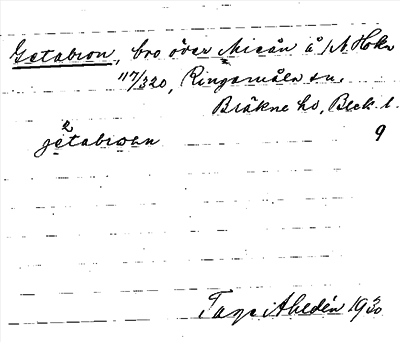 Getabron, bro över Mieån å 1/4 Hoka
117/320, Ringamåla sn.
Bräkne hd, Blek. l.
getabroen 9
Tage Ahldén 1930